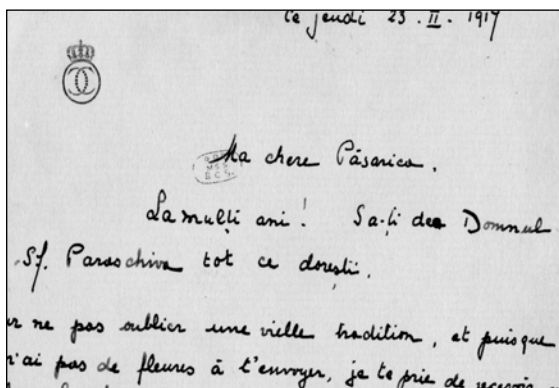 le jeudi 23. II. 1917
Ma chere Păsarica.
La mulți ani! Sa-ți dea Domnul
Sf. Paraschiva tot ce dorești.
ne pas oublier une vielle tradition, et puisque
n'ai pas de fleures à t'envoyer, je te prie de recevoir